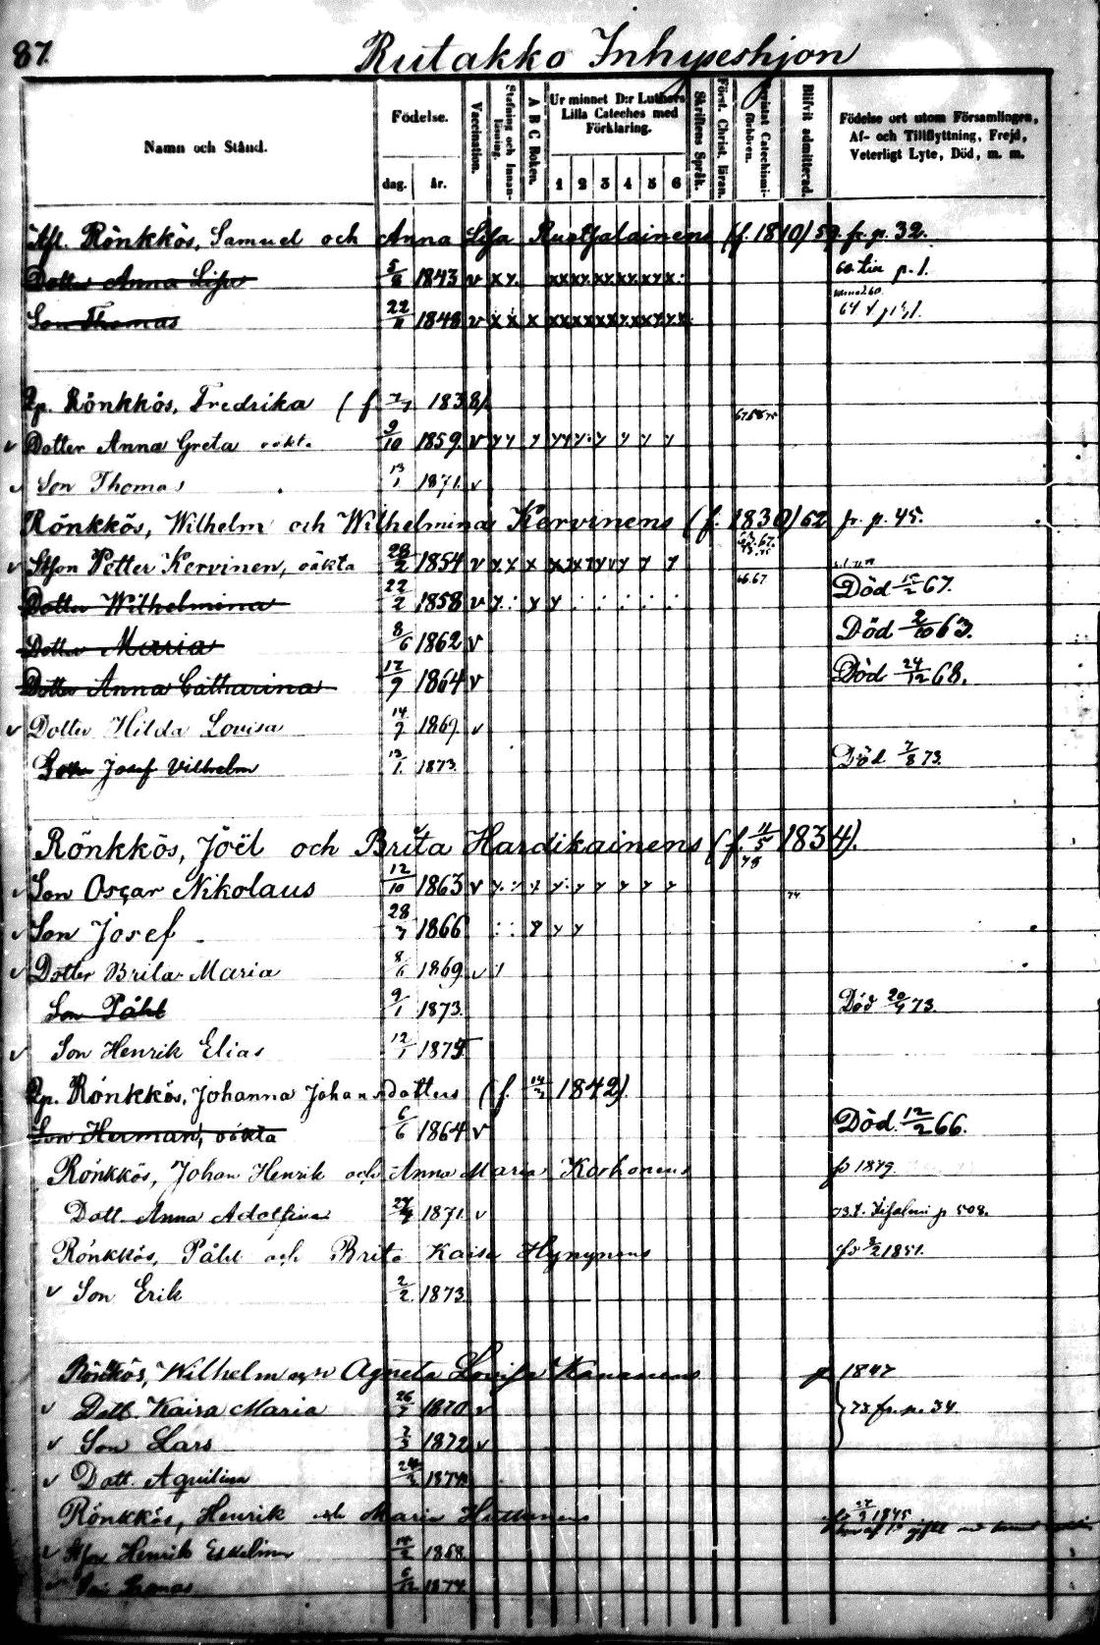 87.
Rutakko Inhyseshjon
Namn och Stånd.
Födelse.
dag. år.
Vaccination.
Stafning och Innan-läsning.
A B C Boken.
Ur minnet D:r Luthers Lilla Cateches med Förklaring.
1 2 3 4 5 6
Skriftens Språk.
Först. Christ. läran.
Blifvit admitterad.
Födelse ort utom Församlingen, Af- och Tillflyttning, Frejd, Veterligt Lyte, Död, m. m.
Rönkkös, Samuel och Anna Lisa Rustjalainens (f. 1810/59. fr. p. 32.
Dotter Anna Lisa 5/8 1843 v
Son Thomas 22/11 1848 v
Rönkkös, Fredrika (f. 1838).
Dotter Anna Greta oäkt. 9/10 1859 v
Son Thomas 13/1 1871 v
Rönkkös, Wilhelm och Wilhelmina Kervinens (f. 1830/62 fr. p. 45.
Petter Kervinen, oäkta 28/2 1854 v
Dotter Wilhelmina 22/2 1858 v Död 67.
Dotter Maria 8/6 1862 v Död 2/10 63.
Dotter Anna Catharina 17/9 1864 v Död 24/12 68.
Dotter Hilda Lovisa 14/7 1869 v
Josef Vilhelm 13/1 1873 Död 7/8 73.
Rönkkös, Joël och Brita Hardikainens (f. 11/5 1834).
Son Oscar Nikolaus 12/10 1863 v
Son Josef 28/7 1866
Dotter Brita Maria 8/6 1869 v
Son Påhl 9/1 1873. Död 20/4 73.
Son Henrik Elias 12/1 1875
Rönkkös, Johanna Johansdotters (f. 1842).
Son Herman, oäkta 6/6 1864 v Död 12/2 66.
Rönkkös, Johan Henrik och Anna Maria Korhonens 1849.
Dott. Anna Adolfina 1871 v p 508.
Rönkkös, Påhl och Brita Kaisa Hynynens 1851.
Son Erik 2/2 1873
Rönkkös, Wilhelm Agneta Lovisa Kananens 1847
Dott. Kaisa Maria 26/7 1870 v 73 fr. p. 34.
Son Lars 1872 v
Dott. Aquilina 1874
Rönkkös, Henrik och Maria Huttunens 1845
Henrik Eskelinen 1868
1874